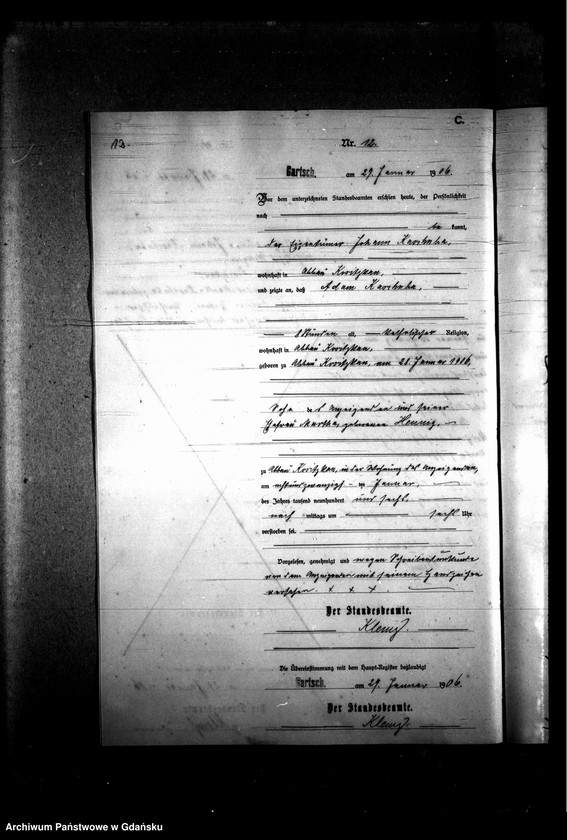 C.
12.
Nr. 12.
Gartsch. am 29. Januar 1906.
Vor dem unterzeichneten Standesbeamten erschien heute, der Persönlichkeit
nach
be kannt,
der Eigentümer Johann
wohnhaft in Abbau
und zeigte an, daß Adam
Stunden alt, katholischer Religion,
wohnhaft in Abbau
geboren zu Abbau am 28. Januar 1906,
Sohn des Anzeigenden und seiner
Ehefrau Martha, geborenen Hennig,
zu Abbau in der Wohnung des Anzeigenden,
am achtundzwanzigsten Januar,
des Jahres tausend neunhundert und sechs
nach mittags um sechs Uhr
verstorben sei.
Vorgelesen, genehmigt und wegen Schreibensunkunde
von dem Anzeigenden mit seinem Handzeichen
versehen. + + +
Der Standesbeamte.
Die Übereinstimmung mit dem Haupt-Register beglaubigt
Gartsch. am 29. Januar 1906.
Der Standesbeamte.
Archiwum Państwowe w Gdańsku